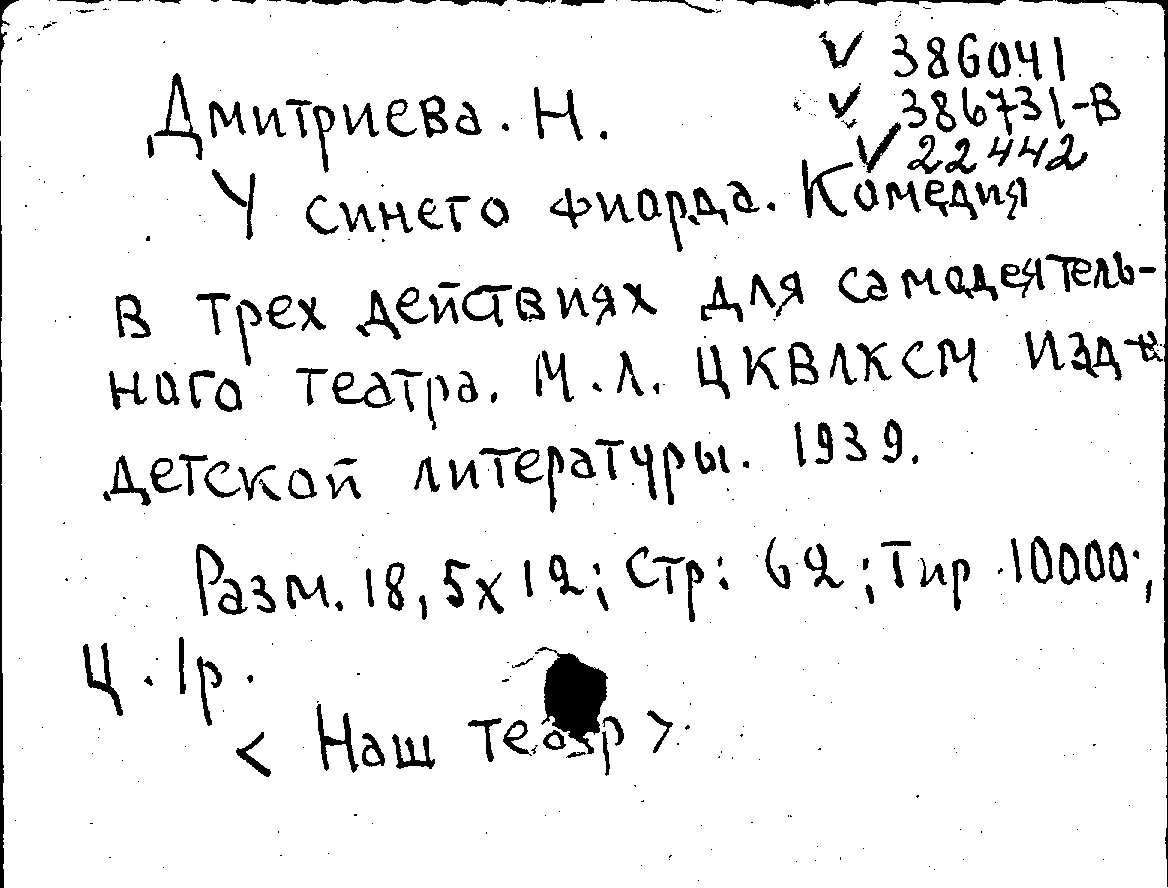 ✓ 386041
Дмитриева. Н.
✓ 386731-В
✓ 22442
У синего фиорда. Комедия
в трех действиях для самодеятель-
ного театра. М.Л. ЦКВЛКСМ Изд-во
детской литературы. 1939.
Разм. 18,5х12; Стр: 62; Тир 10000;
Ц. 1р.
< Наш театр >